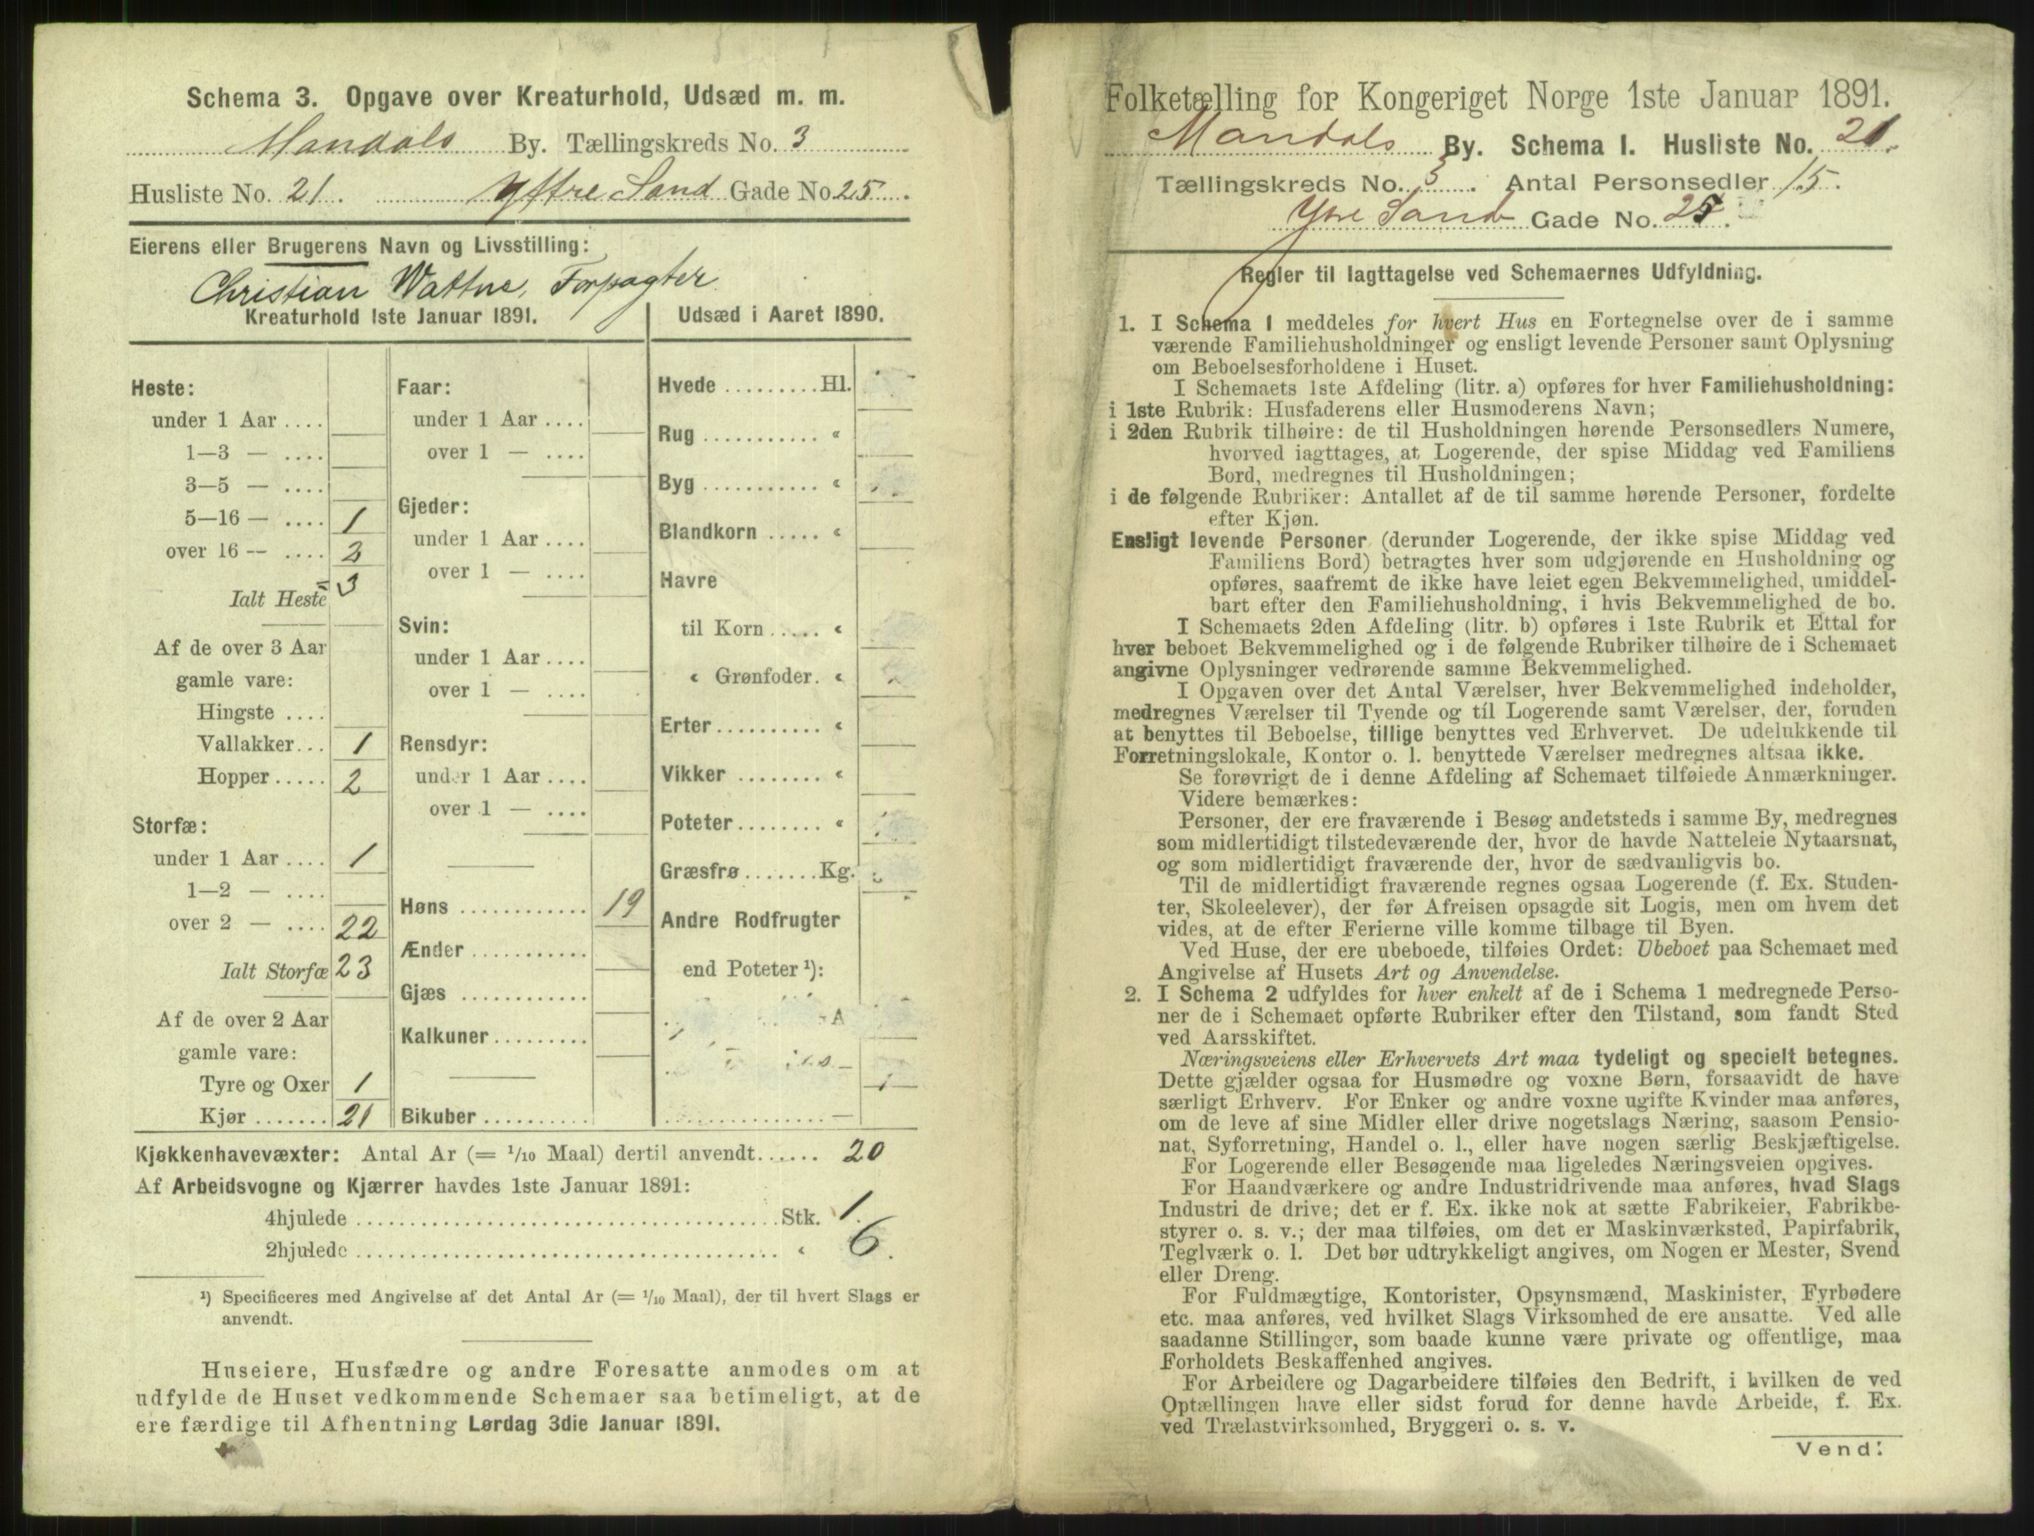 Schema 3. Opgave over Kreaturhold, Udsæd m. m.
Mandals By. Tællingskreds No. 3
Husliste No. 21. Yttre Sand Gade No. 25.
Eierens eller Brugerens Navn og Livsstilling:
Christian Wattne, Forpagter.
Kreaturhold 1ste Januar 1891.
Heste:
under 1 Aar ....
1—3 — ....
3—5 — ....
5—16 — .... 1
over 16 — .... 2
Ialt Heste 3
Af de over 3 Aar
gamle vare:
Hingste ....
Vallakker... 1
Hopper..... 2
Storfæ:
under 1 Aar .... 1
1—2 — ....
over 2 — .... 22
Ialt Storfæ 23
Af de over 2 Aar
gamle vare:
Tyre og Oxer 1
Kjør....... 21
Faar:
under 1 Aar ....
over 1 — ....
Gjeder:
under 1 Aar ....
over 1 — ....
Svin:
under 1 Aar ....
over 1 — ....
Rensdyr:
under 1 Aar ....
over 1 — ....
Høns............ 19
Ænder...........
Gjæs............
Kalkuner.........
Bikuber..........
Udsæd i Aaret 1890.
Hvede .........Hl.
Rug ........... «
Byg ........... «
Blandkorn ..... «
Havre
til Korn..... «
« Grønfoder. «
Erter.......... «
Vikker ........ «
Poteter........ «
Græsfrø.......Kg.
Andre Rodfrugter
end Poteter ¹):
Kjøkkenhavevæxter: Antal Ar (= 1/10 Maal) dertil anvendt...... 20
Af Arbeidsvogne og Kjærrer havdes 1ste Januar 1891:
4hjulede ........................................Stk. 1.
2hjulede ........................................ « 6.
¹) Specificeres med Angivelse af det Antal Ar (= 1/10 Maal), der til hvert Slags er
anvendt.
Huseiere, Husfædre og andre Foresatte anmodes om at
udfylde de Huset vedkommende Schemaer saa betimeligt, at de
ere færdige til Afhentning Lørdag 3die Januar 1891.
Folketælling for Kongeriget Norge 1ste Januar 1891.
Mandals By. Schema I. Husliste No. 21.
Tællingskreds No. 3. Antal Personsedler 15.
Ytre Sand Gade No. 25.
Regler til Iagttagelse ved Schemaernes Udfyldning.
1. I Schema 1 meddeles for hvert Hus en Fortegnelse over de i samme
værende Familiehusholdninger og ensligt levende Personer samt Oplysning
om Beboelsesforholdene i Huset.
I Schemaets 1ste Afdeling (litr. a) opføres for hver Familiehusholdning:
i 1ste Rubrik: Husfaderens eller Husmoderens Navn;
i 2den Rubrik tilhøire: de til Husholdningen hørende Personsedlers Numere,
hvorved iagttages, at Logerende, der spise Middag ved Familiens
Bord, medregnes til Husholdningen;
i de følgende Rubriker: Antallet af de til samme hørende Personer, fordelte
efter Kjøn.
Ensligt levende Personer (derunder Logerende, der ikke spise Middag ved
Familiens Bord) betragtes hver som udgjørende en Husholdning og
opføres, saafremt de ikke have leiet egen Bekvemmelighed, umiddel-
bart efter den Familiehusholdning, i hvis Bekvemmelighed de bo.
I Schemaets 2den Afdeling (litr. b) opføres i 1ste Rubrik et Ettal for
hver beboet Bekvemmelighed og i de følgende Rubriker tilhøire de i Schemaet
angivne Oplysninger vedrørende samme Bekvemmelighed.
I Opgaven over det Antal Værelser, hver Bekvemmelighed indeholder,
medregnes Værelser til Tyende og til Logerende samt Værelser, der, foruden
at benyttes til Beboelse, tillige benyttes ved Erhvervet. De udelukkende til
Forretningslokale, Kontor o. l. benyttede Værelser medregnes altsaa ikke.
Se forøvrigt de i denne Afdeling af Schemaet tilføiede Anmærkninger.
Videre bemærkes:
Personer, der ere fraværende i Besøg andetsteds i samme By, medregnes
som midlertidigt tilstedeværende der, hvor de havde Natteleie Nytaarsnat,
og som midlertidigt fraværende der, hvor de sædvanligvis bo.
Til de midlertidigt fraværende regnes ogsaa Logerende (f. Ex. Studen-
ter, Skoleelever), der før Afreisen opsagde sit Logis, men om hvem det
vides, at de efter Ferierne ville komme tilbage til Byen.
Ved Huse, der ere ubeboede, tilføies Ordet: Ubeboet paa Schemaet med
Angivelse af Husets Art og Anvendelse.
2. I Schema 2 udfyldes for hver enkelt af de i Schema 1 medregnede Perso-
ner de i Schemaet opførte Rubriker efter den Tilstand, som fandt Sted
ved Aarsskiftet.
Næringsveiens eller Erhvervets Art maa tydeligt og specielt betegnes.
Dette gjælder ogsaa for Husmødre og voxne Børn, forsaavidt de have
særligt Erhverv. For Enker og andre voxne ugifte Kvinder maa anføres,
om de leve af sine Midler eller drive nogetslags Næring, saasom Pensio-
nat, Syforretning, Handel o. l., eller have nogen særlig Beskjæftigelse.
For Logerende eller Besøgende maa ligeledes Næringsveien opgives.
For Haandværkere og andre Industridrivende maa anføres, hvad Slags
Industri de drive; det er f. Ex. ikke nok at sætte Fabrikeier, Fabrikbe-
styrer o. s. v.; der maa tilføies, om det er Maskinværksted, Papirfabrik,
Teglværk o. l. Det bør udtrykkeligt angives, om Nogen er Mester, Svend
eller Dreng.
For Fuldmægtige, Kontorister, Opsynsmænd, Maskinister, Fyrbødere
etc. maa anføres, ved hvilket Slags Virksomhed de ere ansatte. Ved alle
saadanne Stillinger, som baade kunne være private og offentlige, maa
Forholdets Beskaffenhed angives.
For Arbeidere og Dagarbeidere tilføies den Bedrift, i hvilken de ved
Optællingen have eller sidst forud for denne havde Arbeide, f. Ex.
ved Trælastvirksomhed, Bryggeri o. s. v.
Vend!